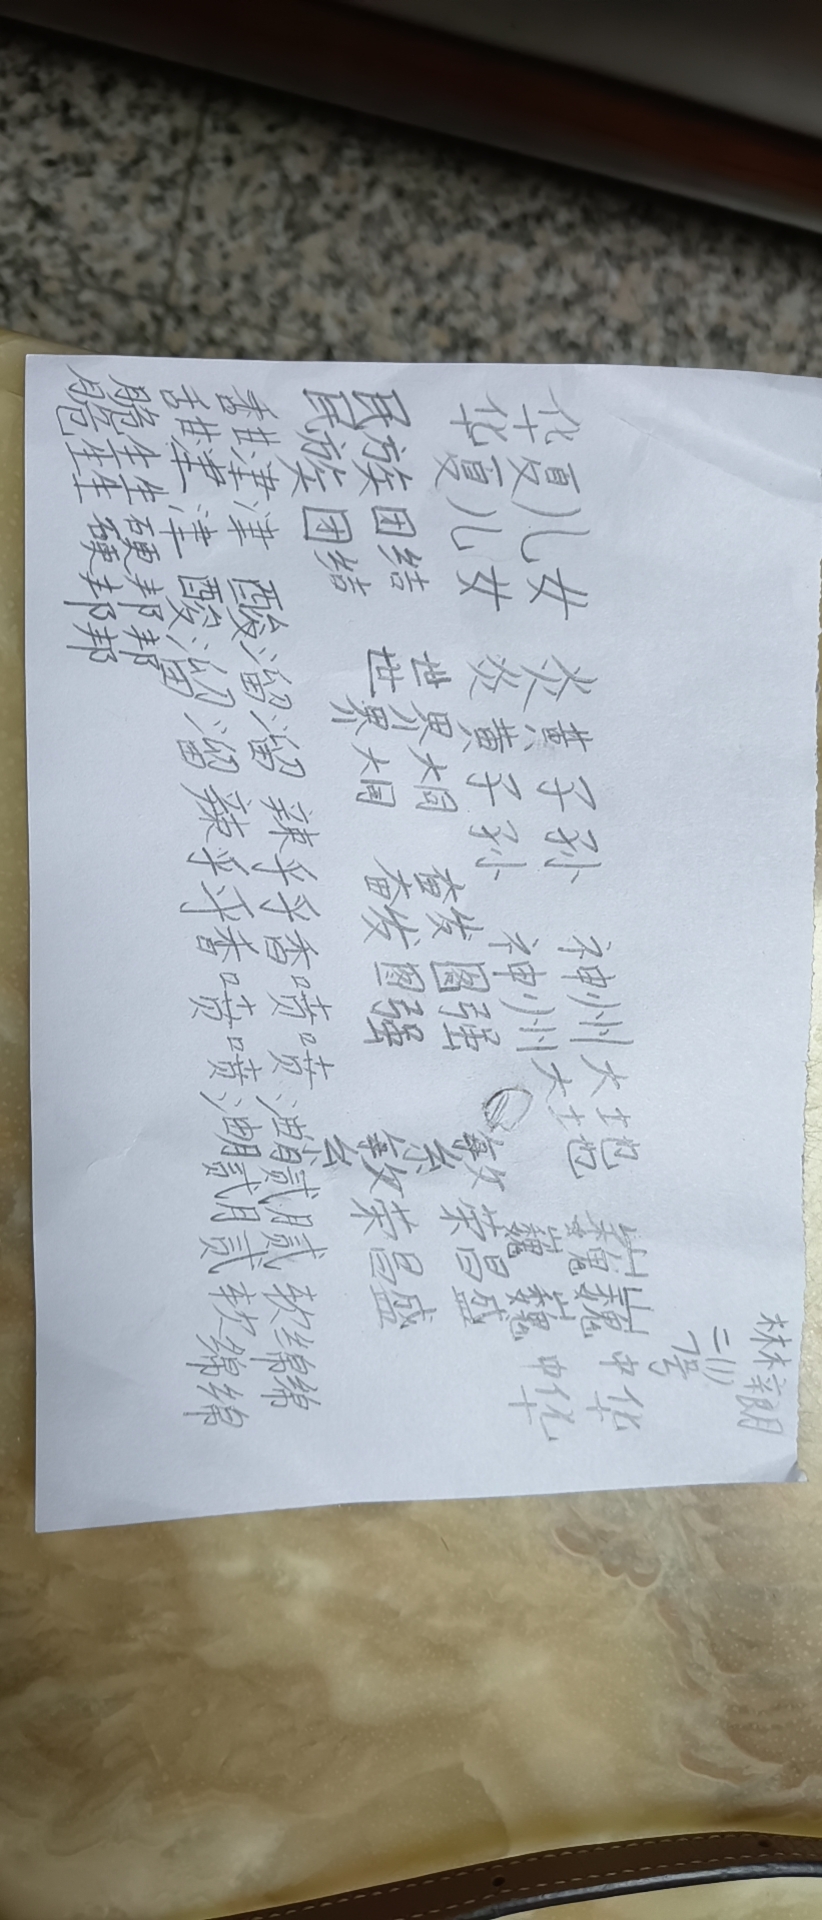 林梓朗
二(1)
7号
华夏儿女 炎黄子孙 神州大地 巍巍中华
华夏儿女 炎黄子孙 神州大地 巍巍中华
民族团结 世界大同 奋发图强 繁荣昌盛
民族团结 世界大同 奋发图强 繁荣昌盛
甜津津 酸溜溜 辣乎乎 香喷喷 油腻腻 软绵绵
甜津津 酸溜溜 辣乎乎 香喷喷 油腻腻 软绵绵
脆生生 硬邦邦
脆生生 硬邦邦